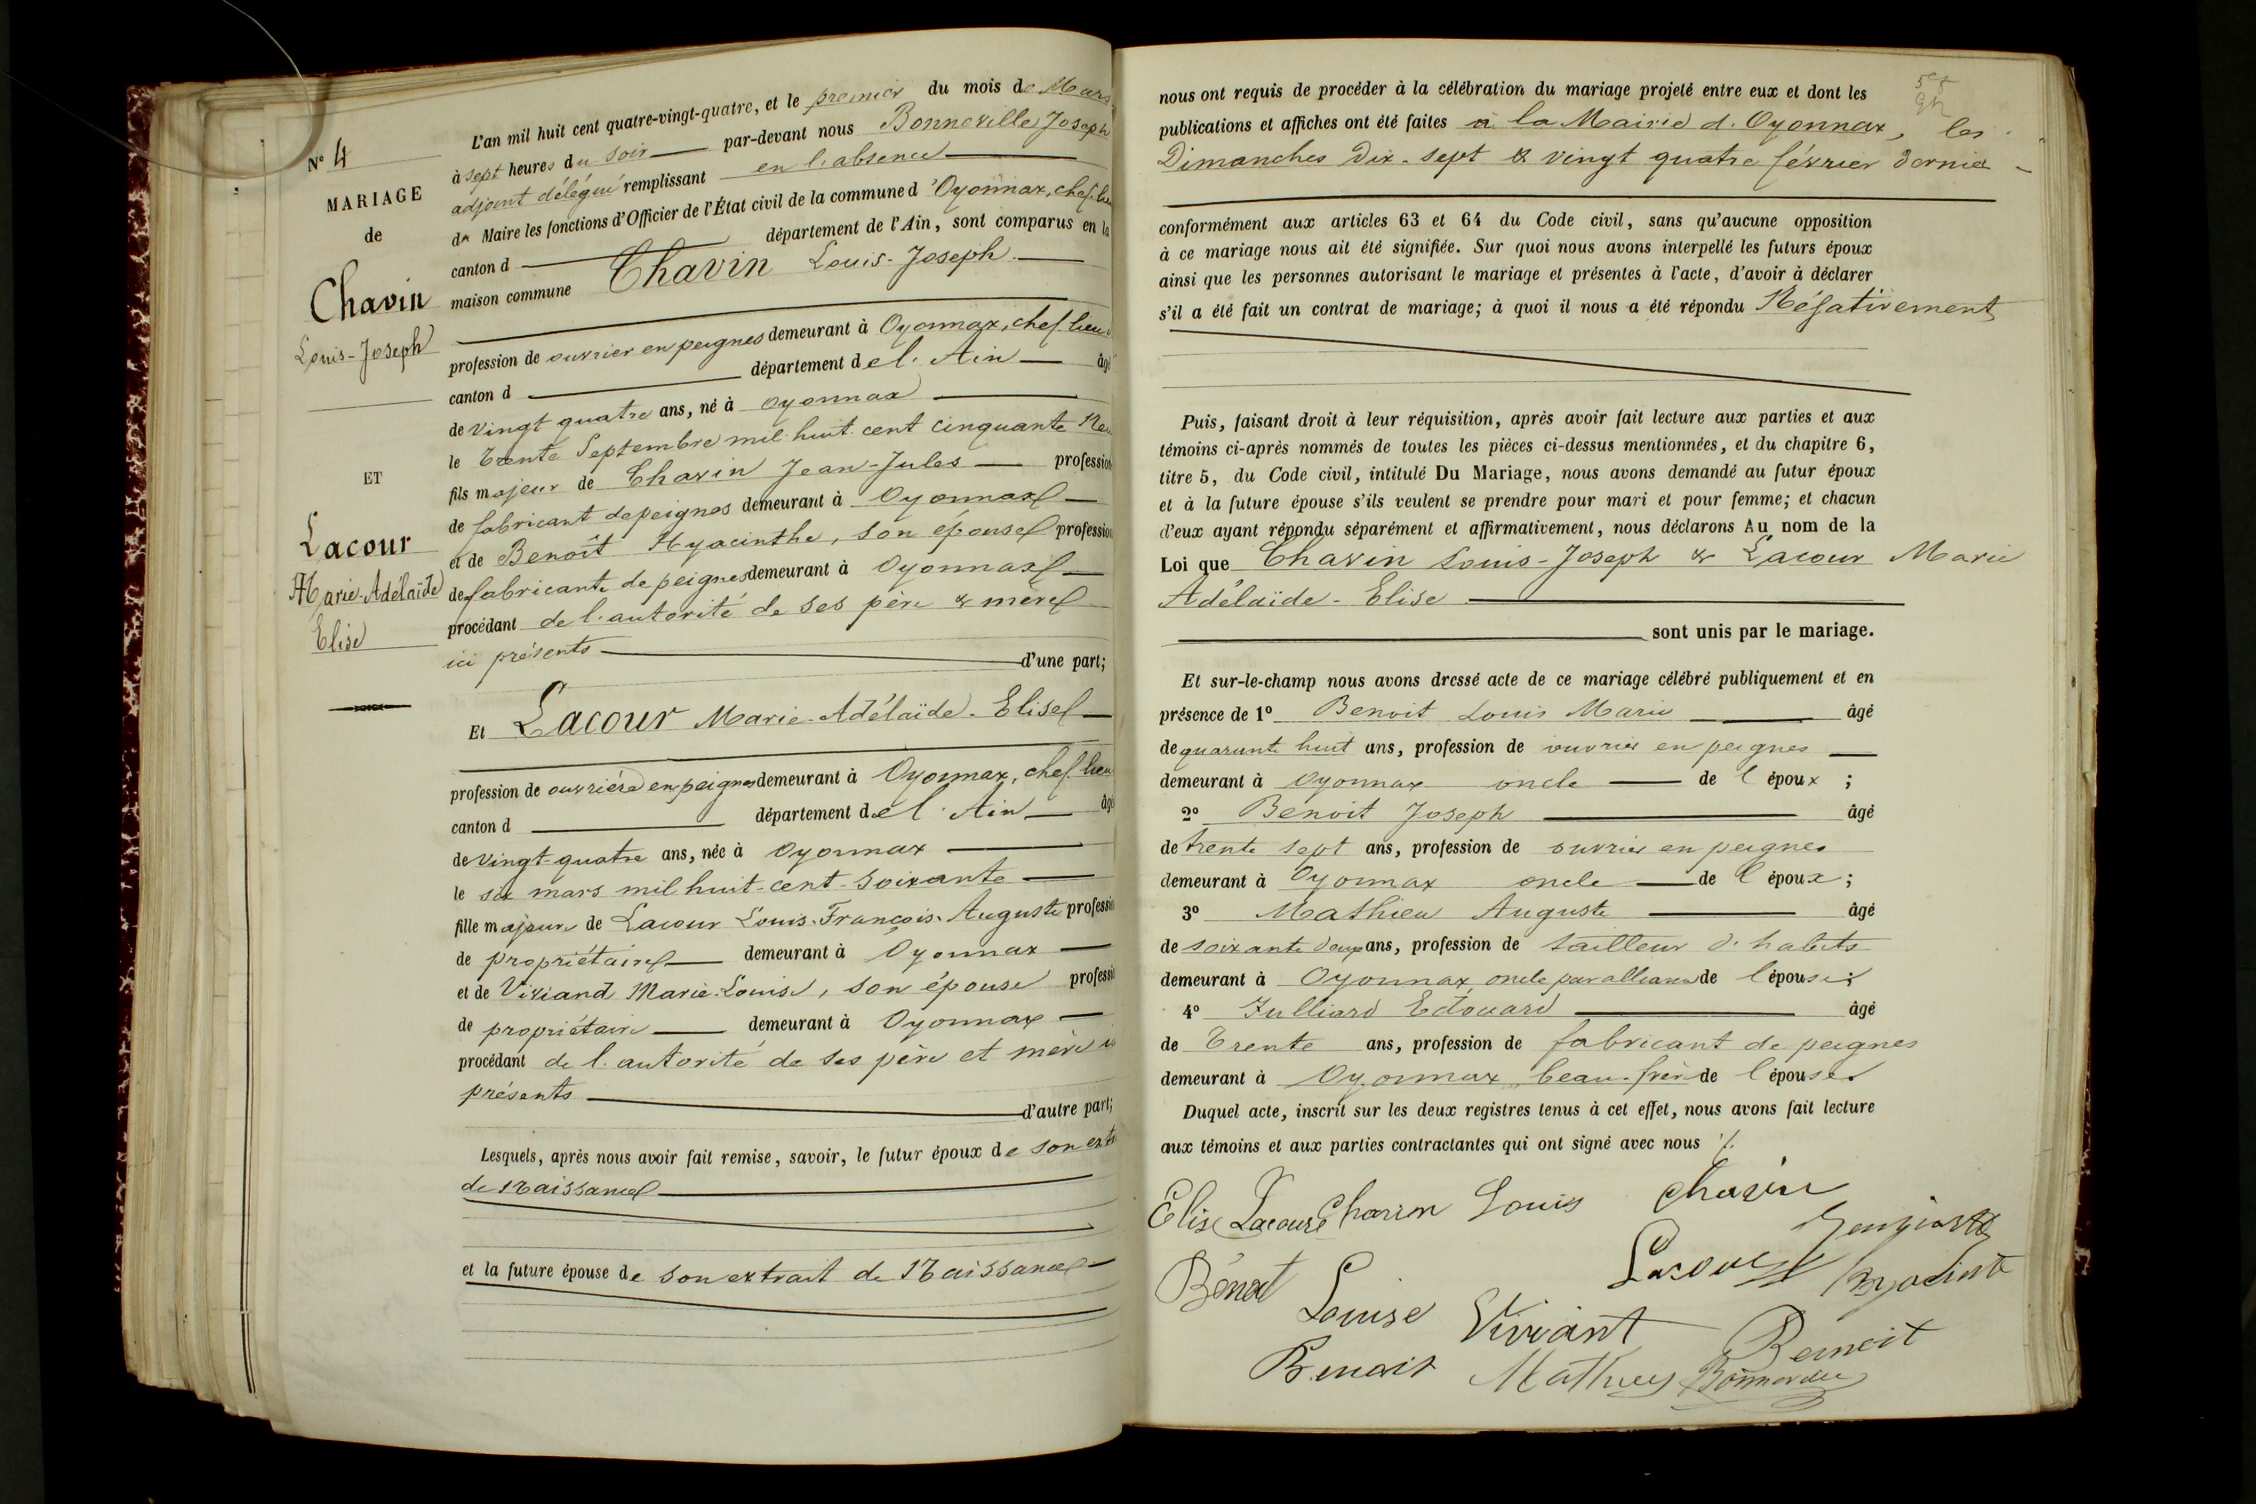 N° 4
MARIAGE
de
Chavin
Louis-Joseph
ET
Lacour
Marie-Adélaïde
Elise
L'an mil huit cent quatre-vingt-quatre, et le premier du mois de Mars
à sept heures du soir par-devant nous Bonneville Joseph
adjoint délégué remplissant en l'absence
du Maire les fonctions d'Officier de l'État civil de la commune d'Oyonnax, chef-lieu
canton d département de l'Ain, sont comparus en la
maison commune Chavin Louis-Joseph
profession de ouvrier en peignes demeurant à Oyonnax, chef-lieu
canton d département de l'Ain âgé
de vingt quatre ans, né à Oyonnax
le trente Septembre mil huit cent cinquante Neu
fils majeur de Chavin Jean-Jules profession
de fabricant de peignes demeurant à Oyonnax
et de Benoît Hyacinthe, son épouse profession
de fabricante de peignes demeurant à Oyonnax
procédant de l'autorité de ses père & mère
ici présents d'une part;
Et Lacour Marie-Adélaïde-Elise
profession de ouvrière en peignes demeurant à Oyonnax, chef-lieu
canton d département de l'Ain âgé
de vingt-quatre ans, née à Oyonnax
le six mars mil huit-cent-soixante
fille majeure de Lacour Louis-François-Auguste profession
de propriétaire demeurant à Oyonnax
et de Viviand Marie-Louise, son épouse profession
de propriétaire demeurant à Oyonnax
procédant de l'autorité de ses père et mère ici
présents d'autre part;
Lesquels, après nous avoir fait remise, savoir, le futur époux de son extr
de Naissance
et la future épouse de son extrait de Naissance
nous ont requis de procéder à la célébration du mariage projeté entre eux et dont les
publications et affiches ont été faites à la Mairie d'Oyonnax, les
Dimanches Dix-sept & vingt quatre février dernier
conformément aux articles 63 et 64 du Code civil, sans qu'aucune opposition
à ce mariage nous ait été signifiée. Sur quoi nous avons interpellé les futurs époux
ainsi que les personnes autorisant le mariage et présentes à l'acte, d'avoir à déclarer
s'il a été fait un contrat de mariage; à quoi il nous a été répondu Négativement
Puis, faisant droit à leur réquisition, après avoir fait lecture aux parties et aux
témoins ci-après nommés de toutes les pièces ci-dessus mentionnées, et du chapitre 6,
titre 5, du Code civil, intitulé Du Mariage, nous avons demandé au futur époux
et à la future épouse s'ils veulent se prendre pour mari et pour femme; et chacun
d'eux ayant répondu séparément et affirmativement, nous déclarons Au nom de la
Loi que Chavin Louis-Joseph & Lacour Marie
Adélaïde-Elise
sont unis par le mariage.
Et sur-le-champ nous avons dressé acte de ce mariage célébré publiquement et en
présence de 1° Benoit Louis Marie âgé
de quarante huit ans, profession de ouvrier en peignes
demeurant à Oyonnax oncle de l'époux;
2° Benoit Joseph âgé
de trente sept ans, profession de ouvrier en peignes
demeurant à Oyonnax oncle de l'époux;
3° Mathieu Auguste âgé
de soixante deux ans, profession de tailleur d'habits
demeurant à Oyonnax oncle par alliance de l'épouse;
4° Julliard Edouard âgé
de Trente ans, profession de fabricant de peignes
demeurant à Oyonnax beau-frère de l'épouse
Duquel acte, inscrit sur les deux registres tenus à cet effet, nous avons fait lecture
aux témoins et aux parties contractantes qui ont signé avec nous
Elise Lacour Louis Chavin
Lacour
Bénoit Louise Viviant
Benoit
Benoit Mathieu